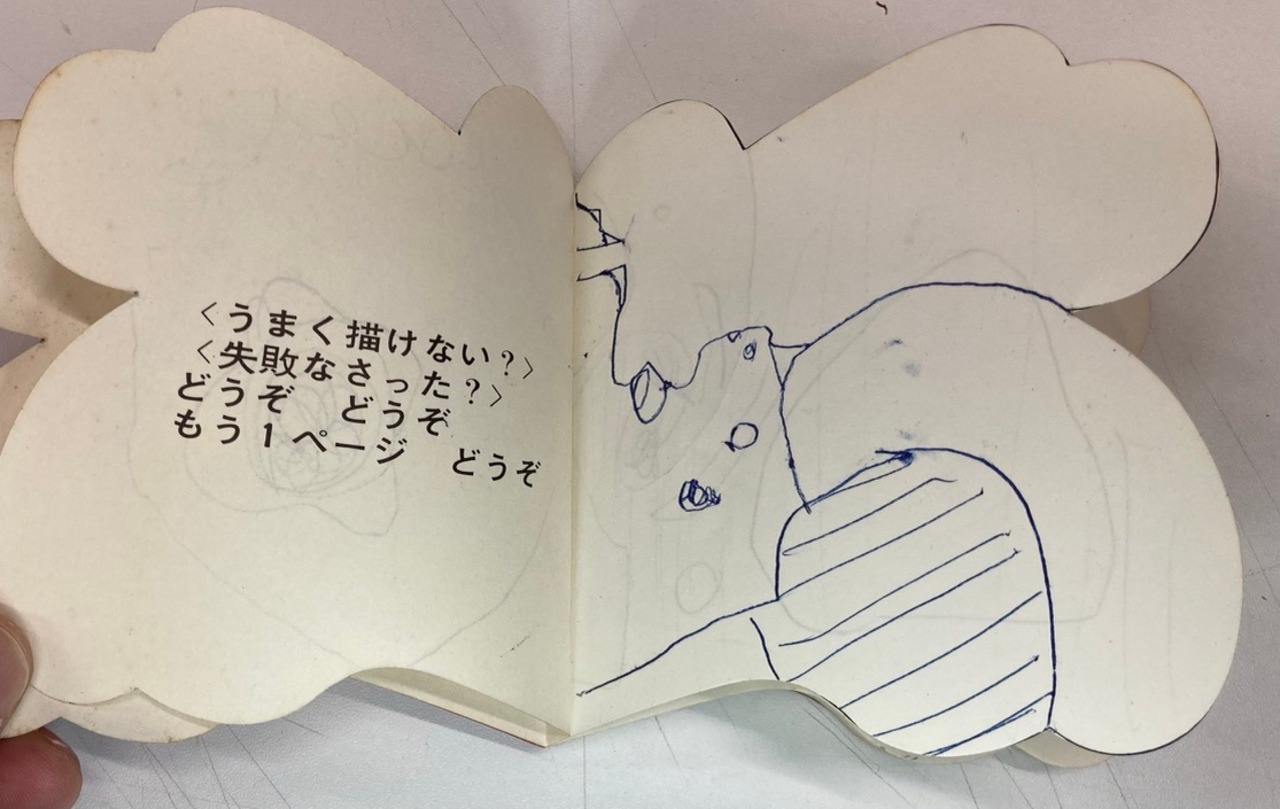 〈うまく描けない?〉
〈失敗なさった?〉
どうぞ　どうぞ
もう1ページ　どうぞ